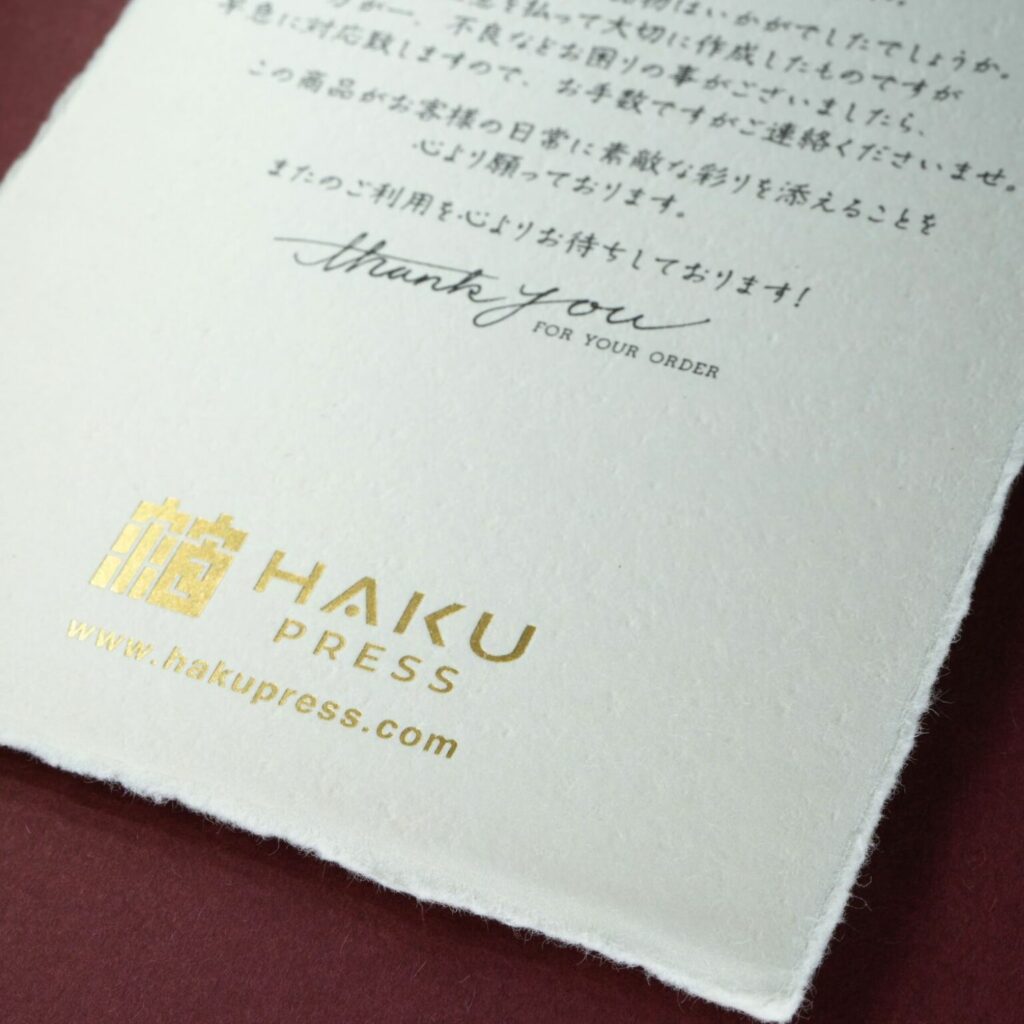 品物はいかがでしたでしょうか。
を払って大切に作成したものですが
が一、不良などお困りの事がございましたら、
早急に対応致しますので、お手数ですがご連絡くださいませ。
この商品がお客様の日常に素敵な彩りを添えることを
心より願っております。
またのご利用を心よりお待ちしております!
thank you
FOR YOUR ORDER
HAKU
PRESS
www.hakupress.com